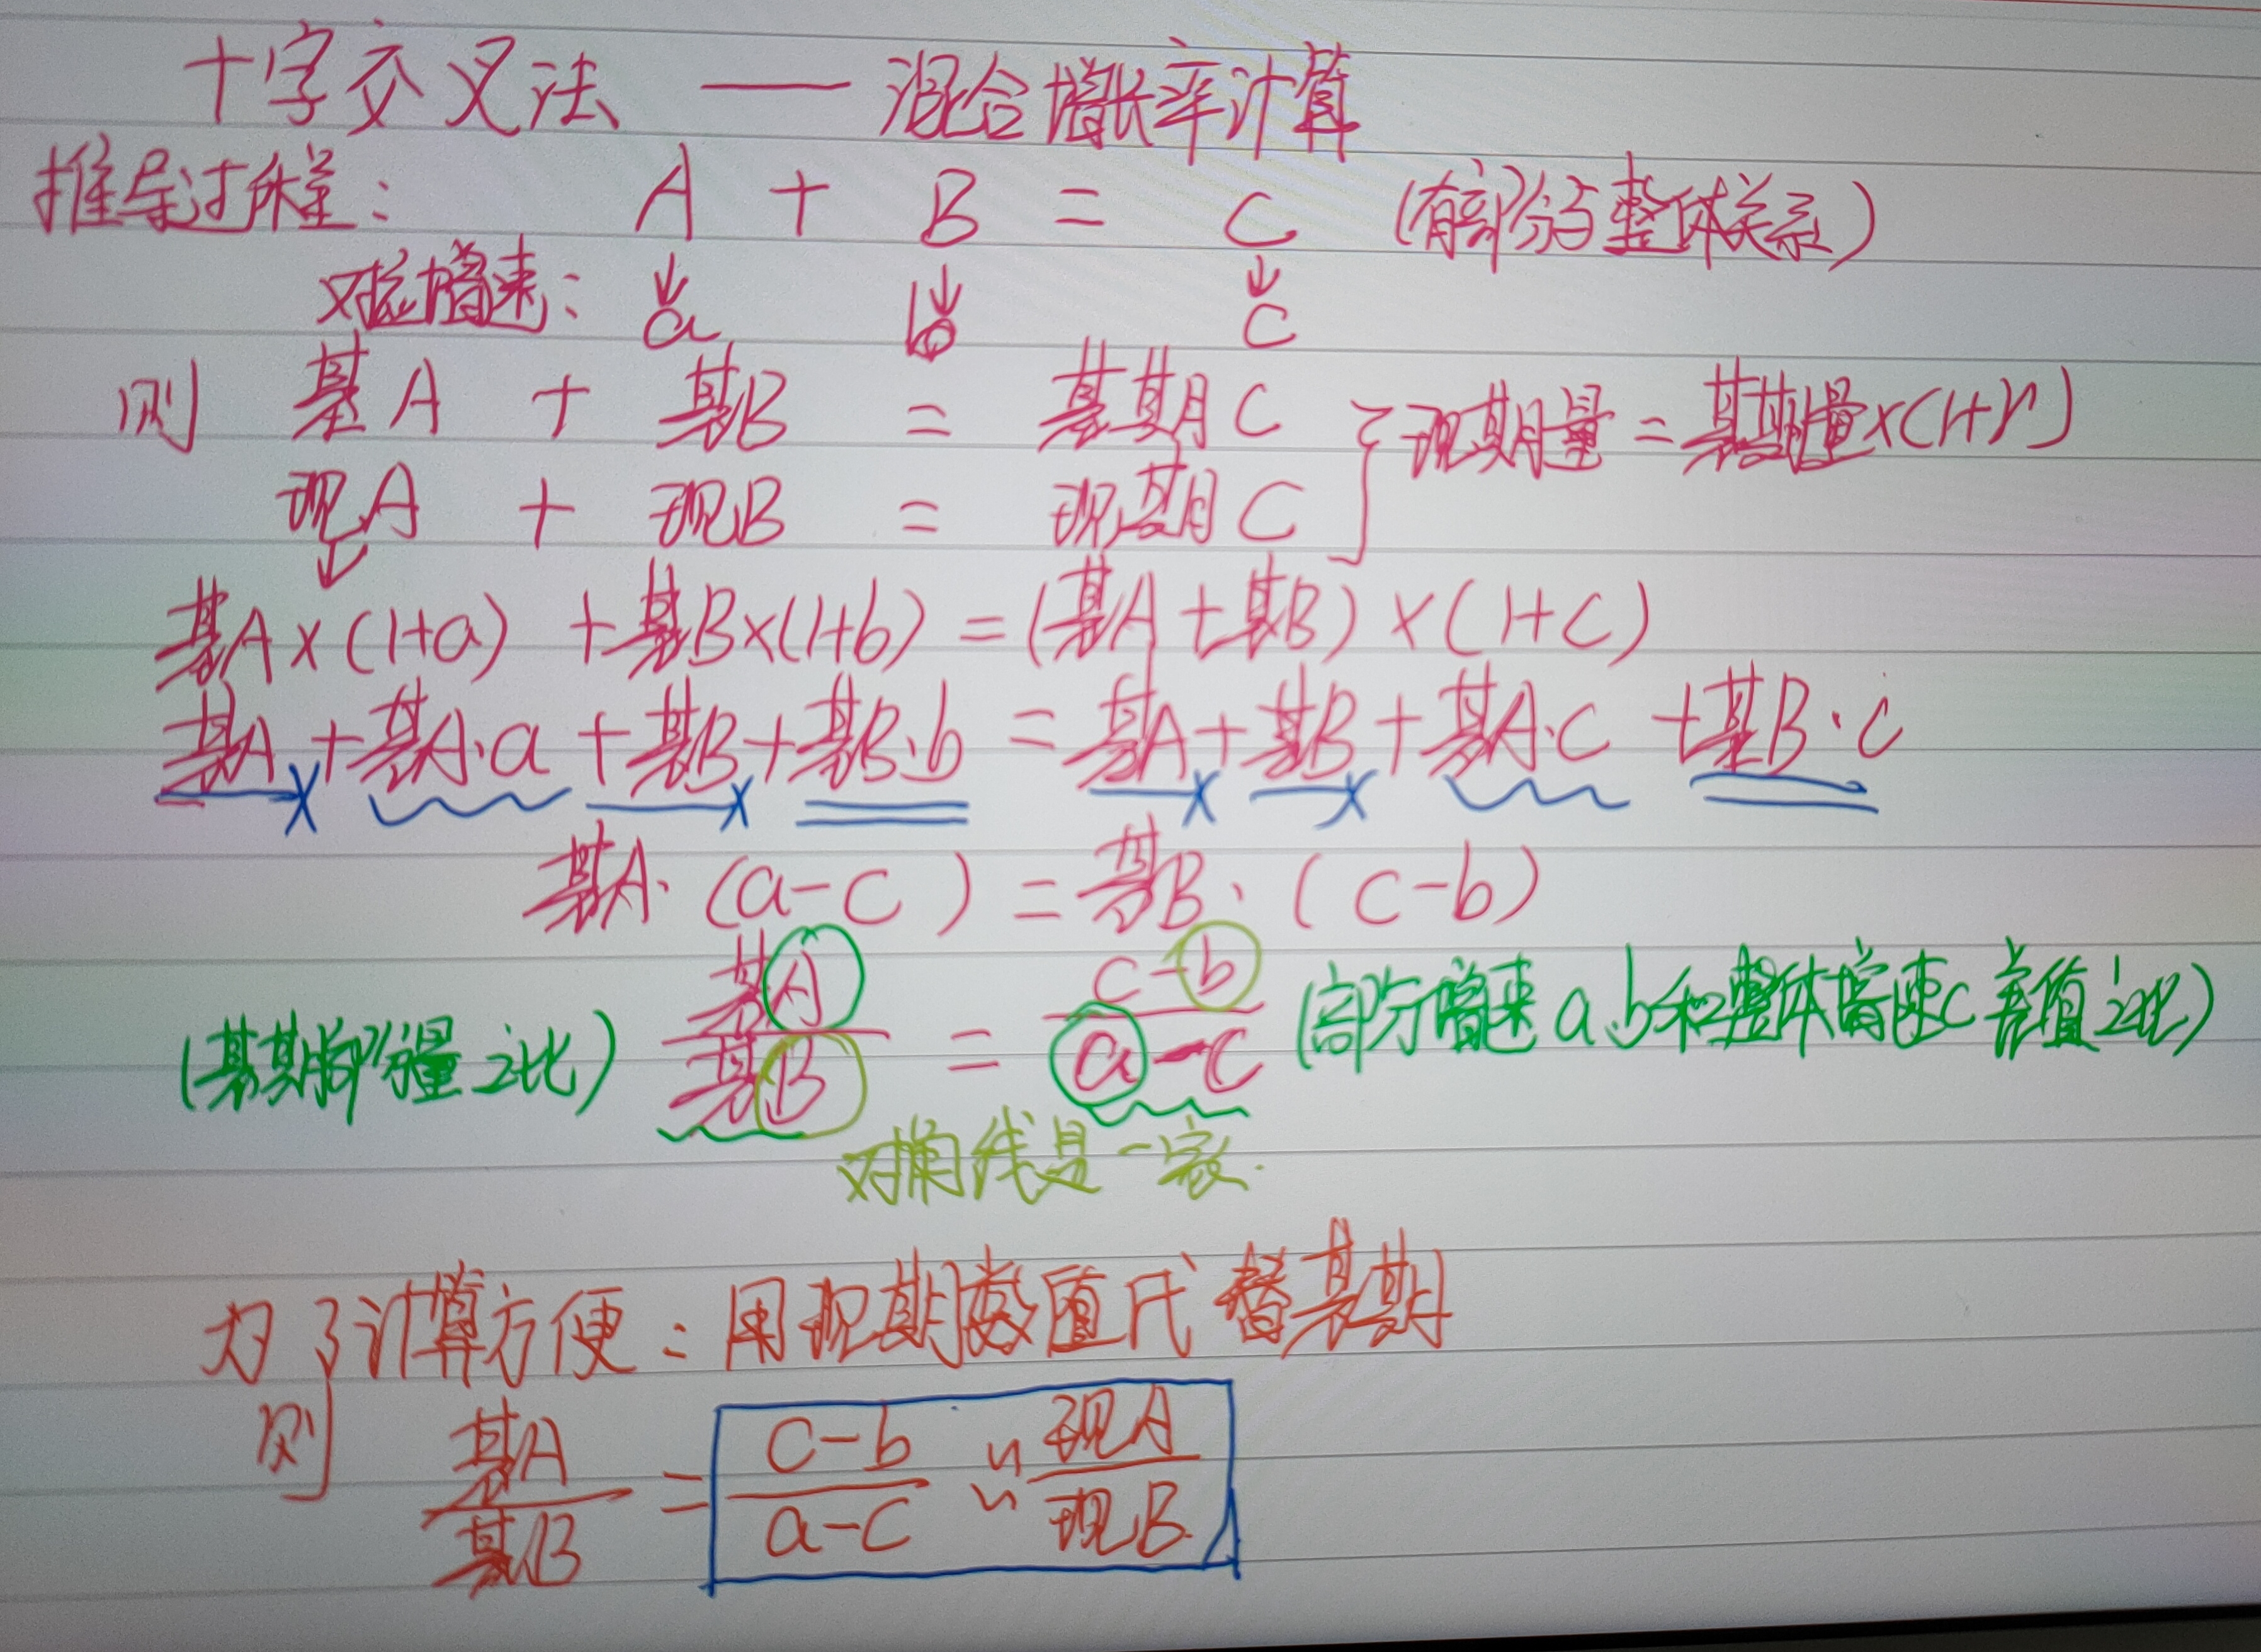 十字交叉法 — 混合增长率计算
推导过程: A + B = C (有部分与整体关系)
对应增速: a b c
则 基A + 基B = 基期C } 现期量=基期量×(1+r)
现A + 现B = 现期C
基A×(1+a) +基B×(1+b)=(基A+基B)×(1+c)
基A+基A·a+基B+基B·b=基A+基B+基A·c+基B·c
基A·(a-c)=基B·(c-b)
(基期部分量之比) 基A/基B = c-b/a-c (部分增速a、b和整体增速c差值之比)
对角线是一家.
为了计算方便:用现期数值代替基期
则 基A/基B = c-b/a-c ≈ 现A/现B